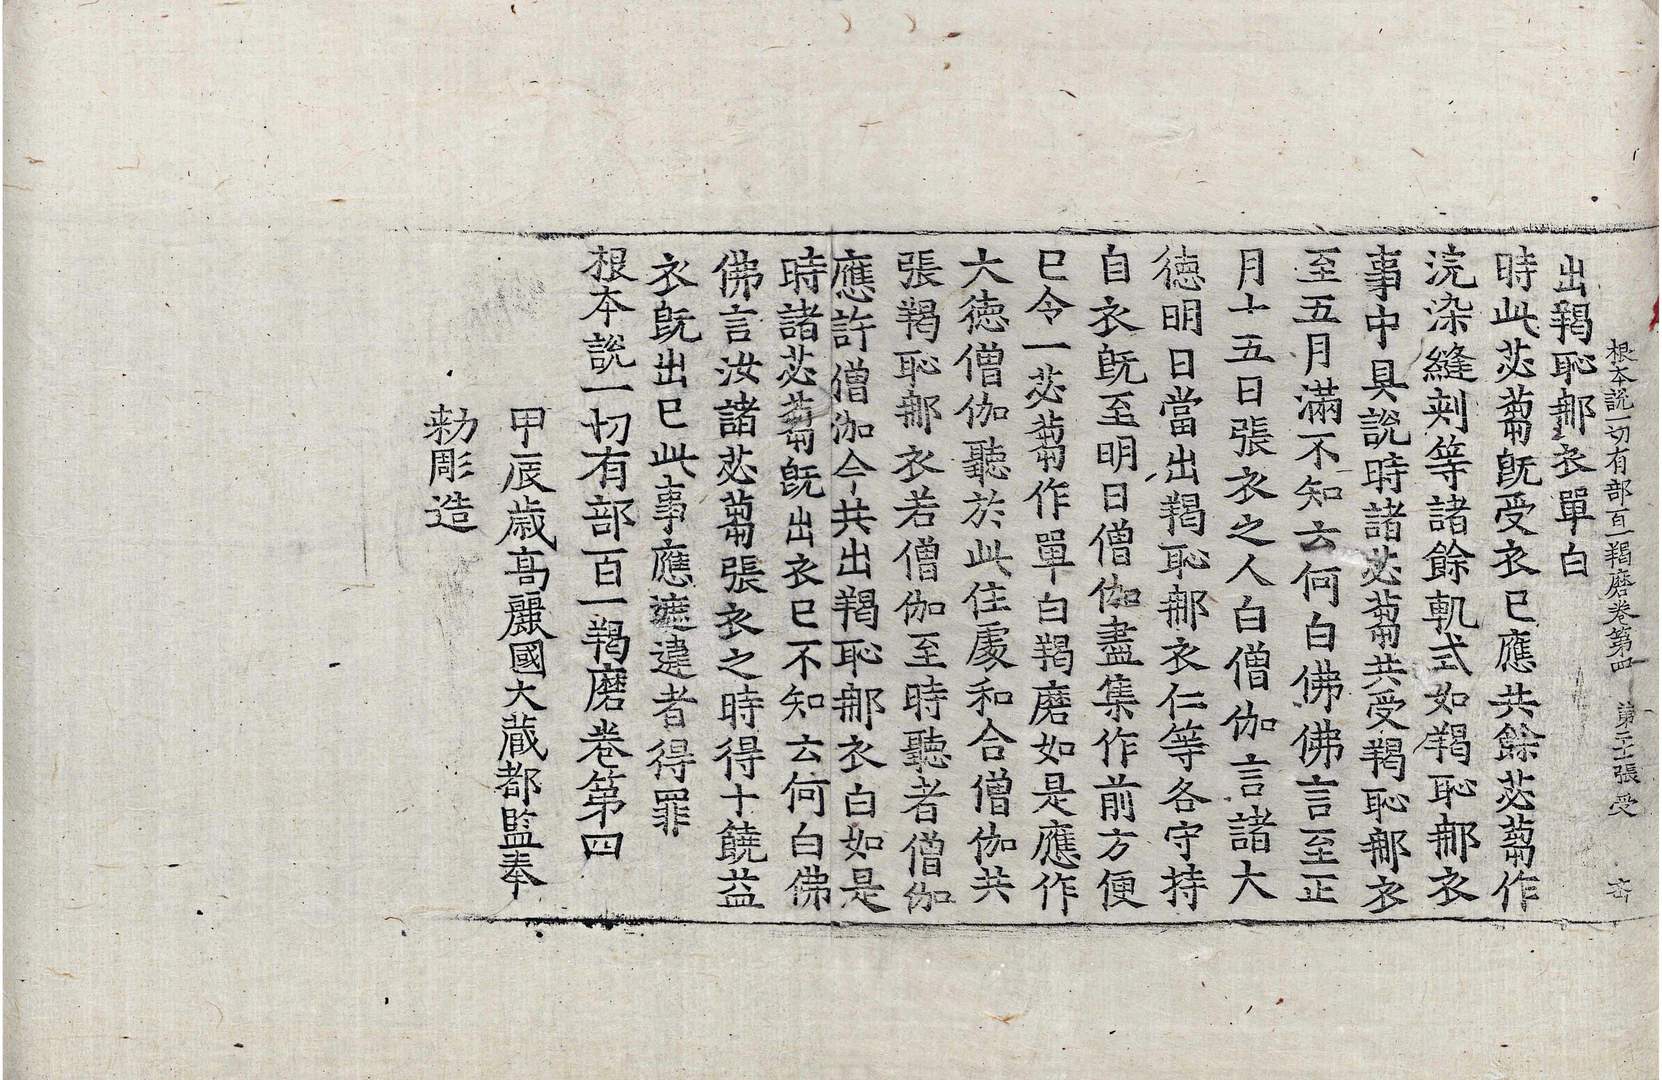 根本說一切有部百一羯磨卷第四 第二十張 受
出羯恥郍衣單白
時此苾蒭旣受衣已應共餘苾蒭作
浣染縫刾等諸餘軌式如羯恥郍衣
事中具說時諸苾蒭共受羯恥郍衣
至五月滿不知云何白佛佛言至正
月十五日張衣之人白僧伽言諸大
徳明日當出羯恥郍衣仁等各守持
自衣旣至明日僧伽盡集作前方便
已令一苾蒭作單白羯磨如是應作
大徳僧伽聽於此住處和合僧伽共
張羯恥郍衣若僧伽至時聽者僧伽
應許僧伽今共出羯恥郍衣白如是
時諸苾蒭旣出衣已不知云何白佛
佛言汝諸苾蒭張衣之時得十饒益
衣旣出已此事應遮違者得罪
根本說一切有部百一羯磨卷第四
甲辰歳高麗國大蔵都監奉
勅彫造